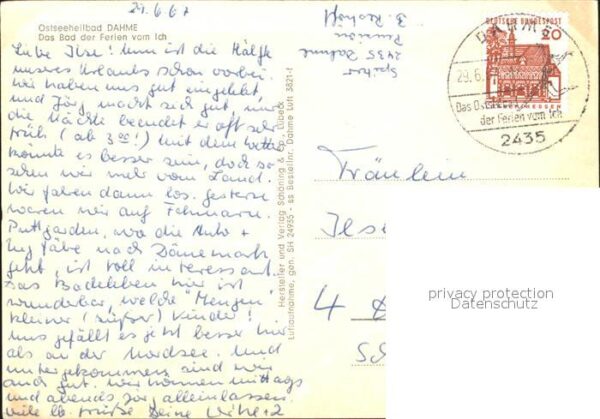 29.6.67
Ostseeheilbad DAHME
Das Bad der Ferien vom Ich
Liebe Ilse! Nun ist die Hälfte
unseres Urlaubs schon vorbei.
Wir haben uns gut eingelebt
und Jörg macht sich gut, nur
die Nächte beendet er oft sehr
früh (ab 3 00!) Mit dem Wetter
könnte es besser sein, doch so
sehen wir mehr vom Land.
Wir fahren dann los. Gestern
waren wir auf Fehmarn.
Puttgarden, wo die Auto +
Zug Fähre nach Dänemark
geht, ist toll interessant.
Das Badeleben hier ist
wunderbar, welche "Mengen"
kleiner (süßer) Kinder!
Uns gefällt es jetzt besser hier
als an der Nordsee. Und
untergekommen sind wir
auch gut. Wir können mittags
und abends Jörg alleinlassen.
Viele lb. Grüße Deine
Hersteller und Verlag Schöning & Co., Lübeck
Luftaufnahme, gen. SH 24955 - ss Bestellnr. Dahme Luft 3821-f
2435 Dahme
Pension
DEUTSCHE BUNDESPOST
20
DAHME
29.6.
Das
der Ferien vom Ich
2435
Fräulein
Ilse
4
privacy protection
Datenschutz